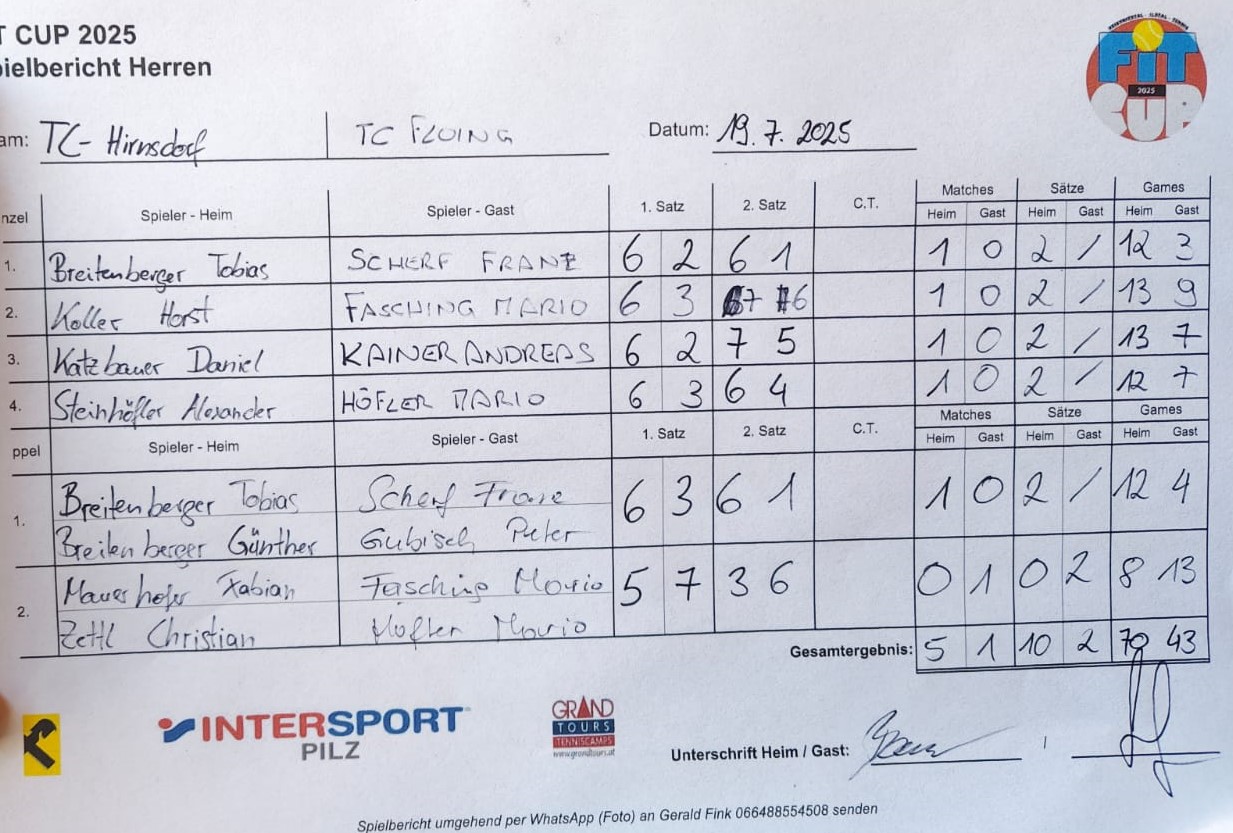 T CUP 2025
pielbericht Herren
FiT
2025
CUP
am: TC- Hirnsdorf TC FLOING Datum: 19. 7. 2025
Matches Sätze Games
nzel Spieler - Heim Spieler - Gast 1. Satz 2. Satz C.T. Heim Gast Heim Gast Heim Gast
1. Breitenberger Tobias SCHERF FRANZ 6 2 6 1 1 0 2 / 12 3
2. Koller Horst FASCHING MARIO 6 3 7 6 1 0 2 / 13 9
3. Katzbauer Daniel KAINER ANDREAS 6 2 7 5 1 0 2 / 13 7
4. Steinhöfler Alexander HÖFLER MARIO 6 3 6 4 1 0 2 / 12 7
Matches Sätze Games
ppel Spieler - Heim Spieler - Gast 1. Satz 2. Satz C.T. Heim Gast Heim Gast Heim Gast
1. Breitenberger Tobias Scherf Franz 6 3 6 1 1 0 2 / 12 4
Breitenberger Günther Gubisch Peter
2. Mauerhofer Fabian Fasching Mario 5 7 3 6 0 1 0 2 8 13
Zettl Christian Höfler Mario
Gesamtergebnis: 5 1 10 2 70 43
INTERSPORT
PILZ
GRAND
TOURS
TENNISCAMPS
www.grandtours.at
Unterschrift Heim / Gast: /
Spielbericht umgehend per WhatsApp (Foto) an Gerald Fink 066488554508 senden